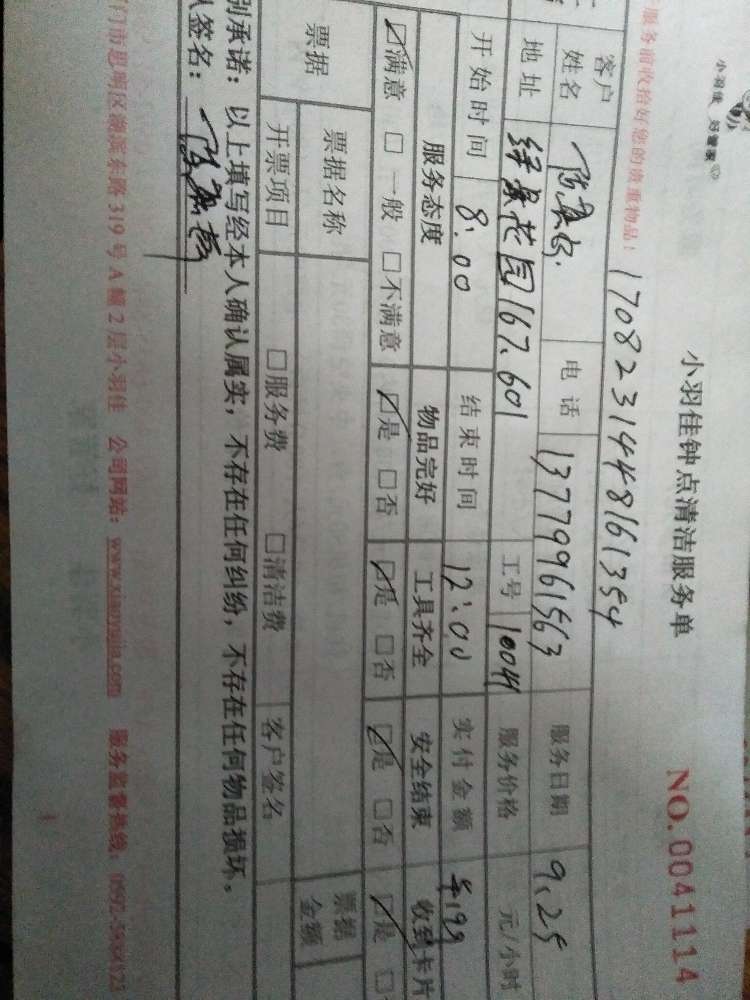 小羽佳 好管家
小羽佳钟点清洁服务单
NO.0041114
服务前收拾好您的贵重物品！
1708231448161354
客户姓名 电话 13779961563 服务日期 9.25
地址 绿景花园167.601 工号 10041 服务价格 元/小时
开始时间 8:00 结束时间 12:00 实付金额 199
服务态度 物品完好 工具齐全 安全结束 收到卡片
☑满意 □一般 □不满意 ☑是 □否 ☑是 □否 ☑是 □否 ☑是 □
票据 票据名称 票据金额
开票项目 □服务费 □清洁费 客户签名
别承诺：以上填写经本人确认属实，不存在任何纠纷，不存在任何物品损坏。
签名：
门市思明区湖滨东路319号A幢2层小羽佳 公司网站：www.xiaoyujia.com 服务监督热线：0592-